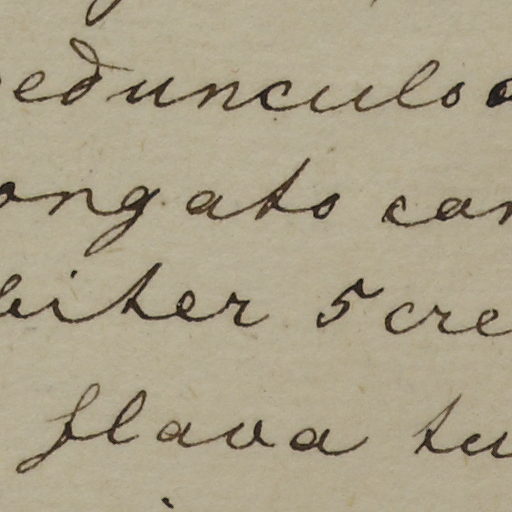 edunculo
ongato car
biter 5 cre
flava tu